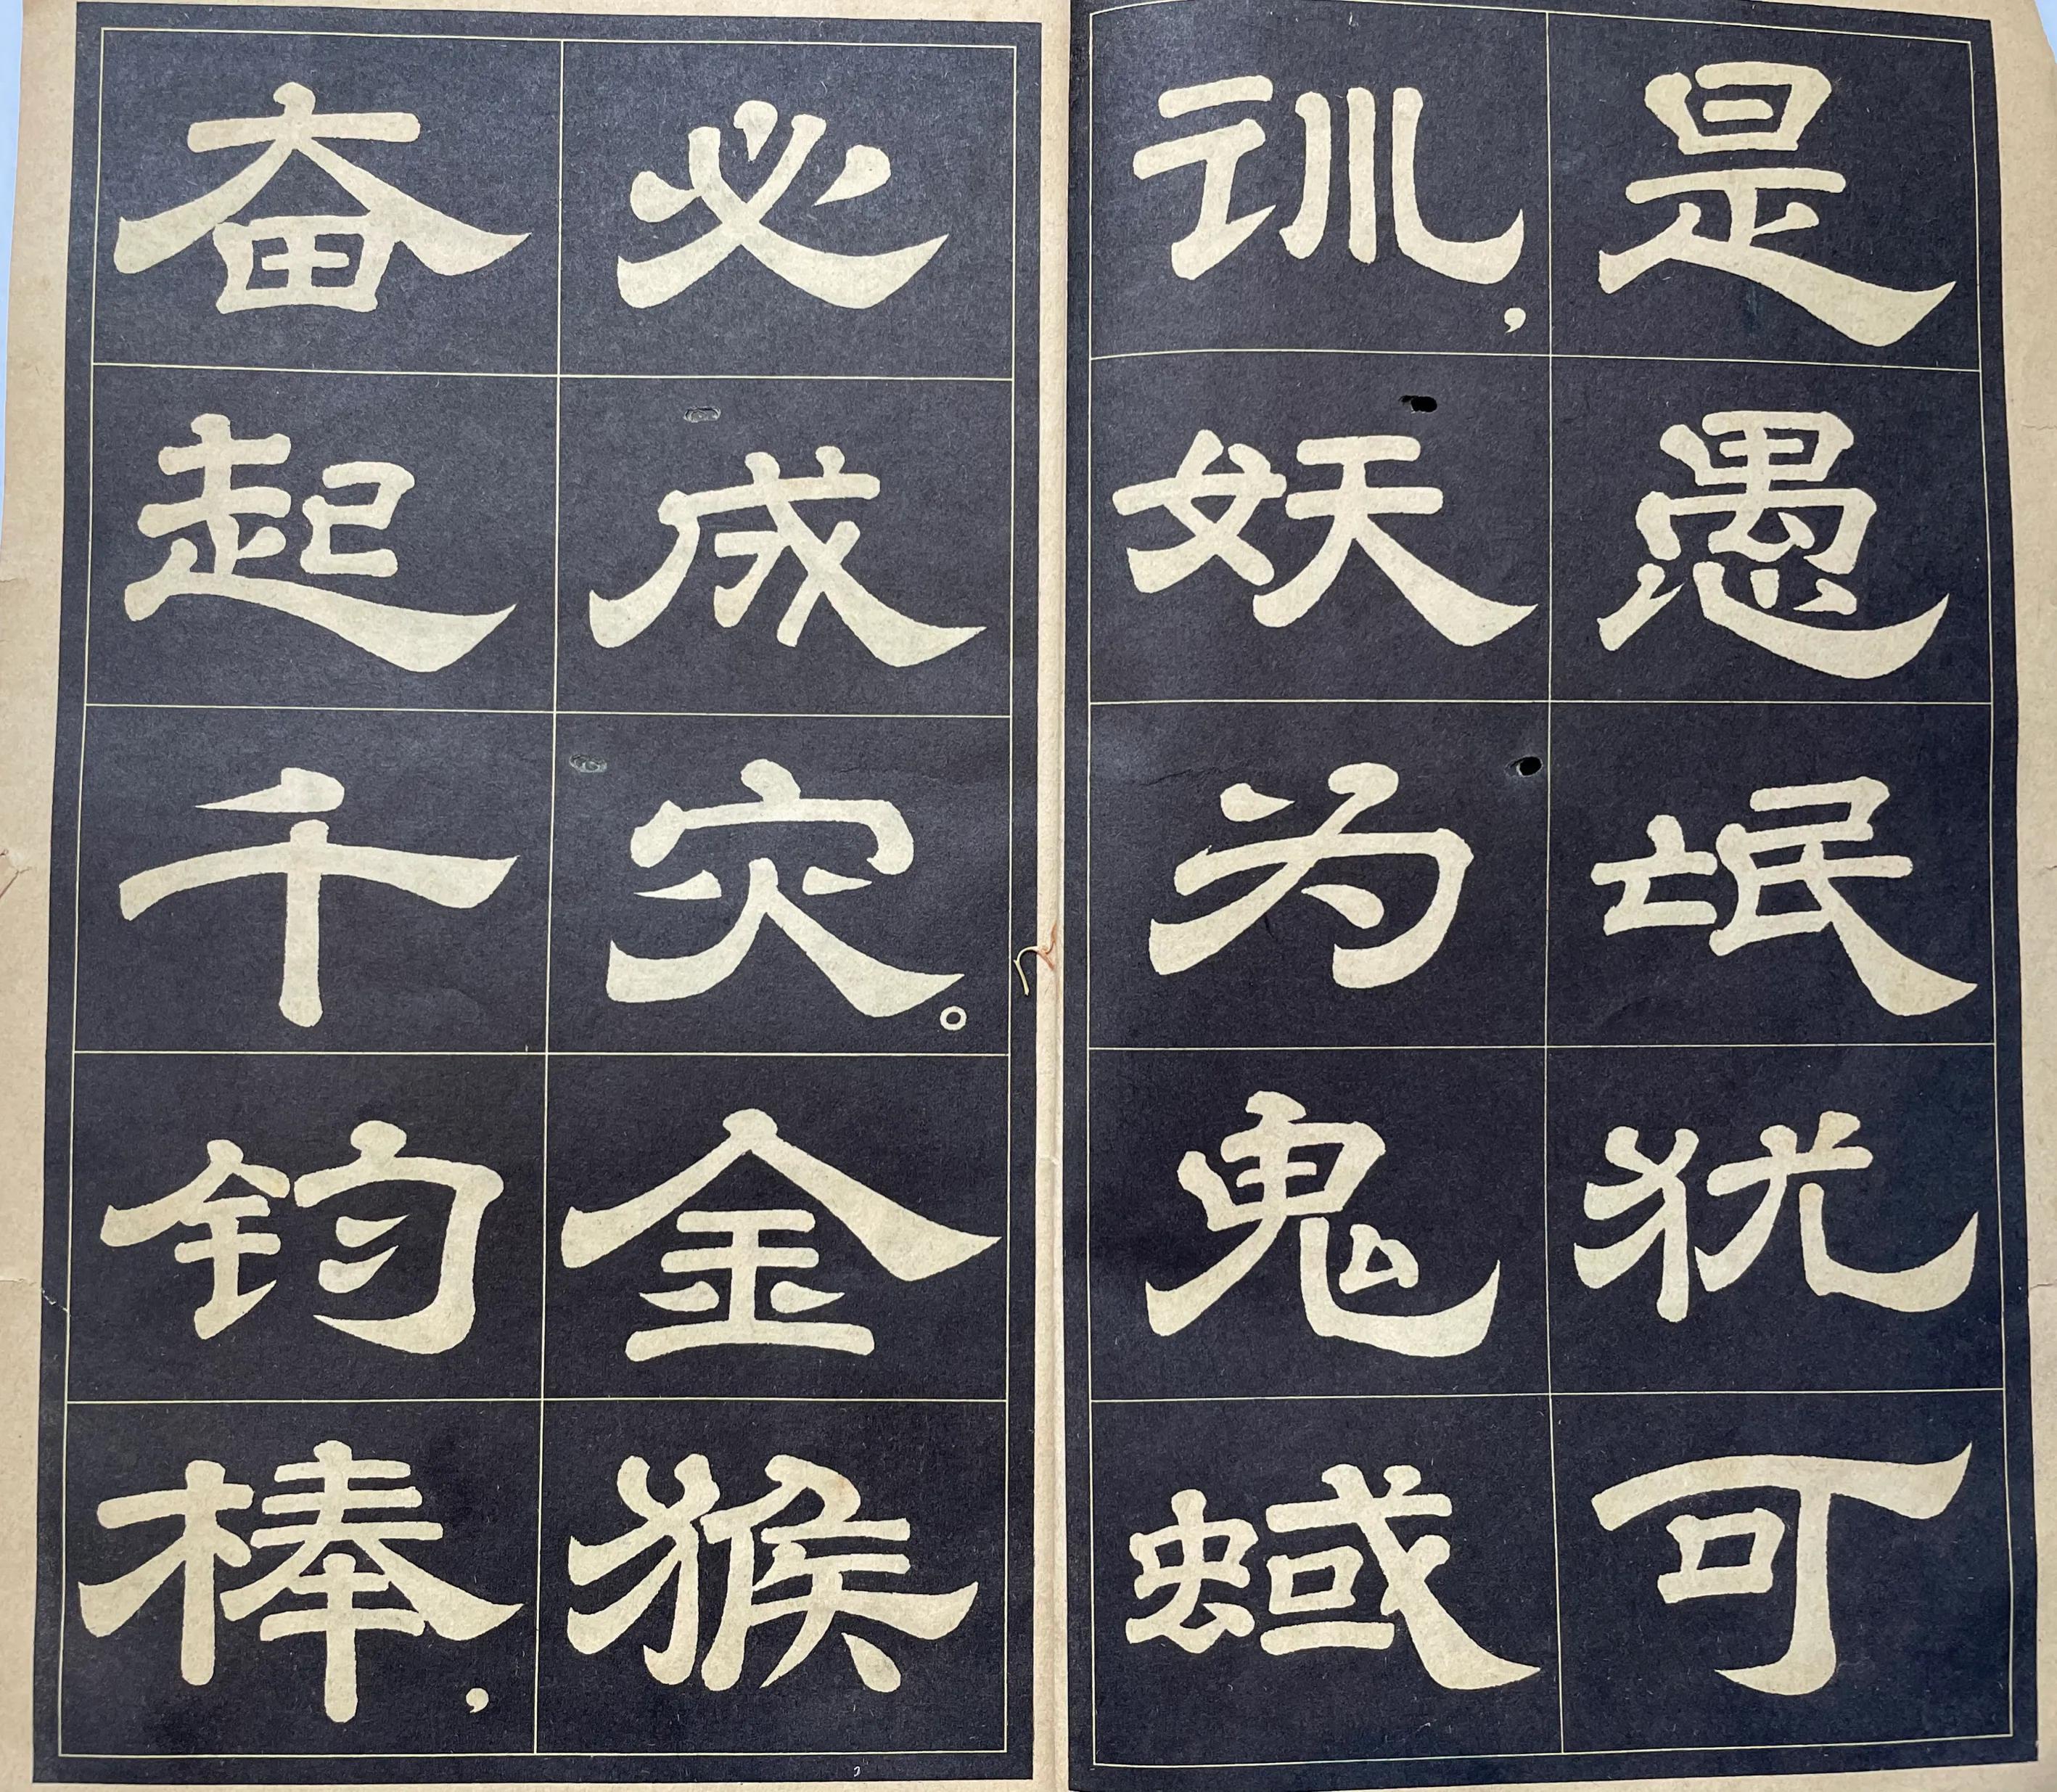 是愚氓犹可
训，妖为鬼蜮
必成灾。金猴
奋起千钧棒，